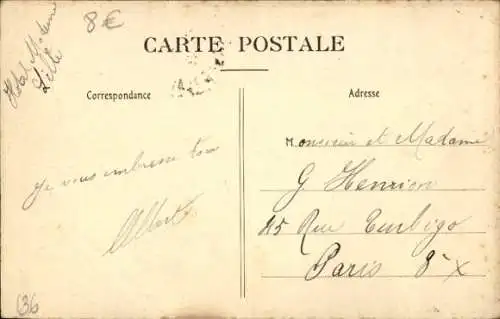 Hotel Moderne
Lille
8€
CARTE POSTALE
Correspondance
Adresse
Je vous embrasse tous
Albert
Monsieur et Madame
G Henrion
45 Rue Turbigo
Paris 8e x
636